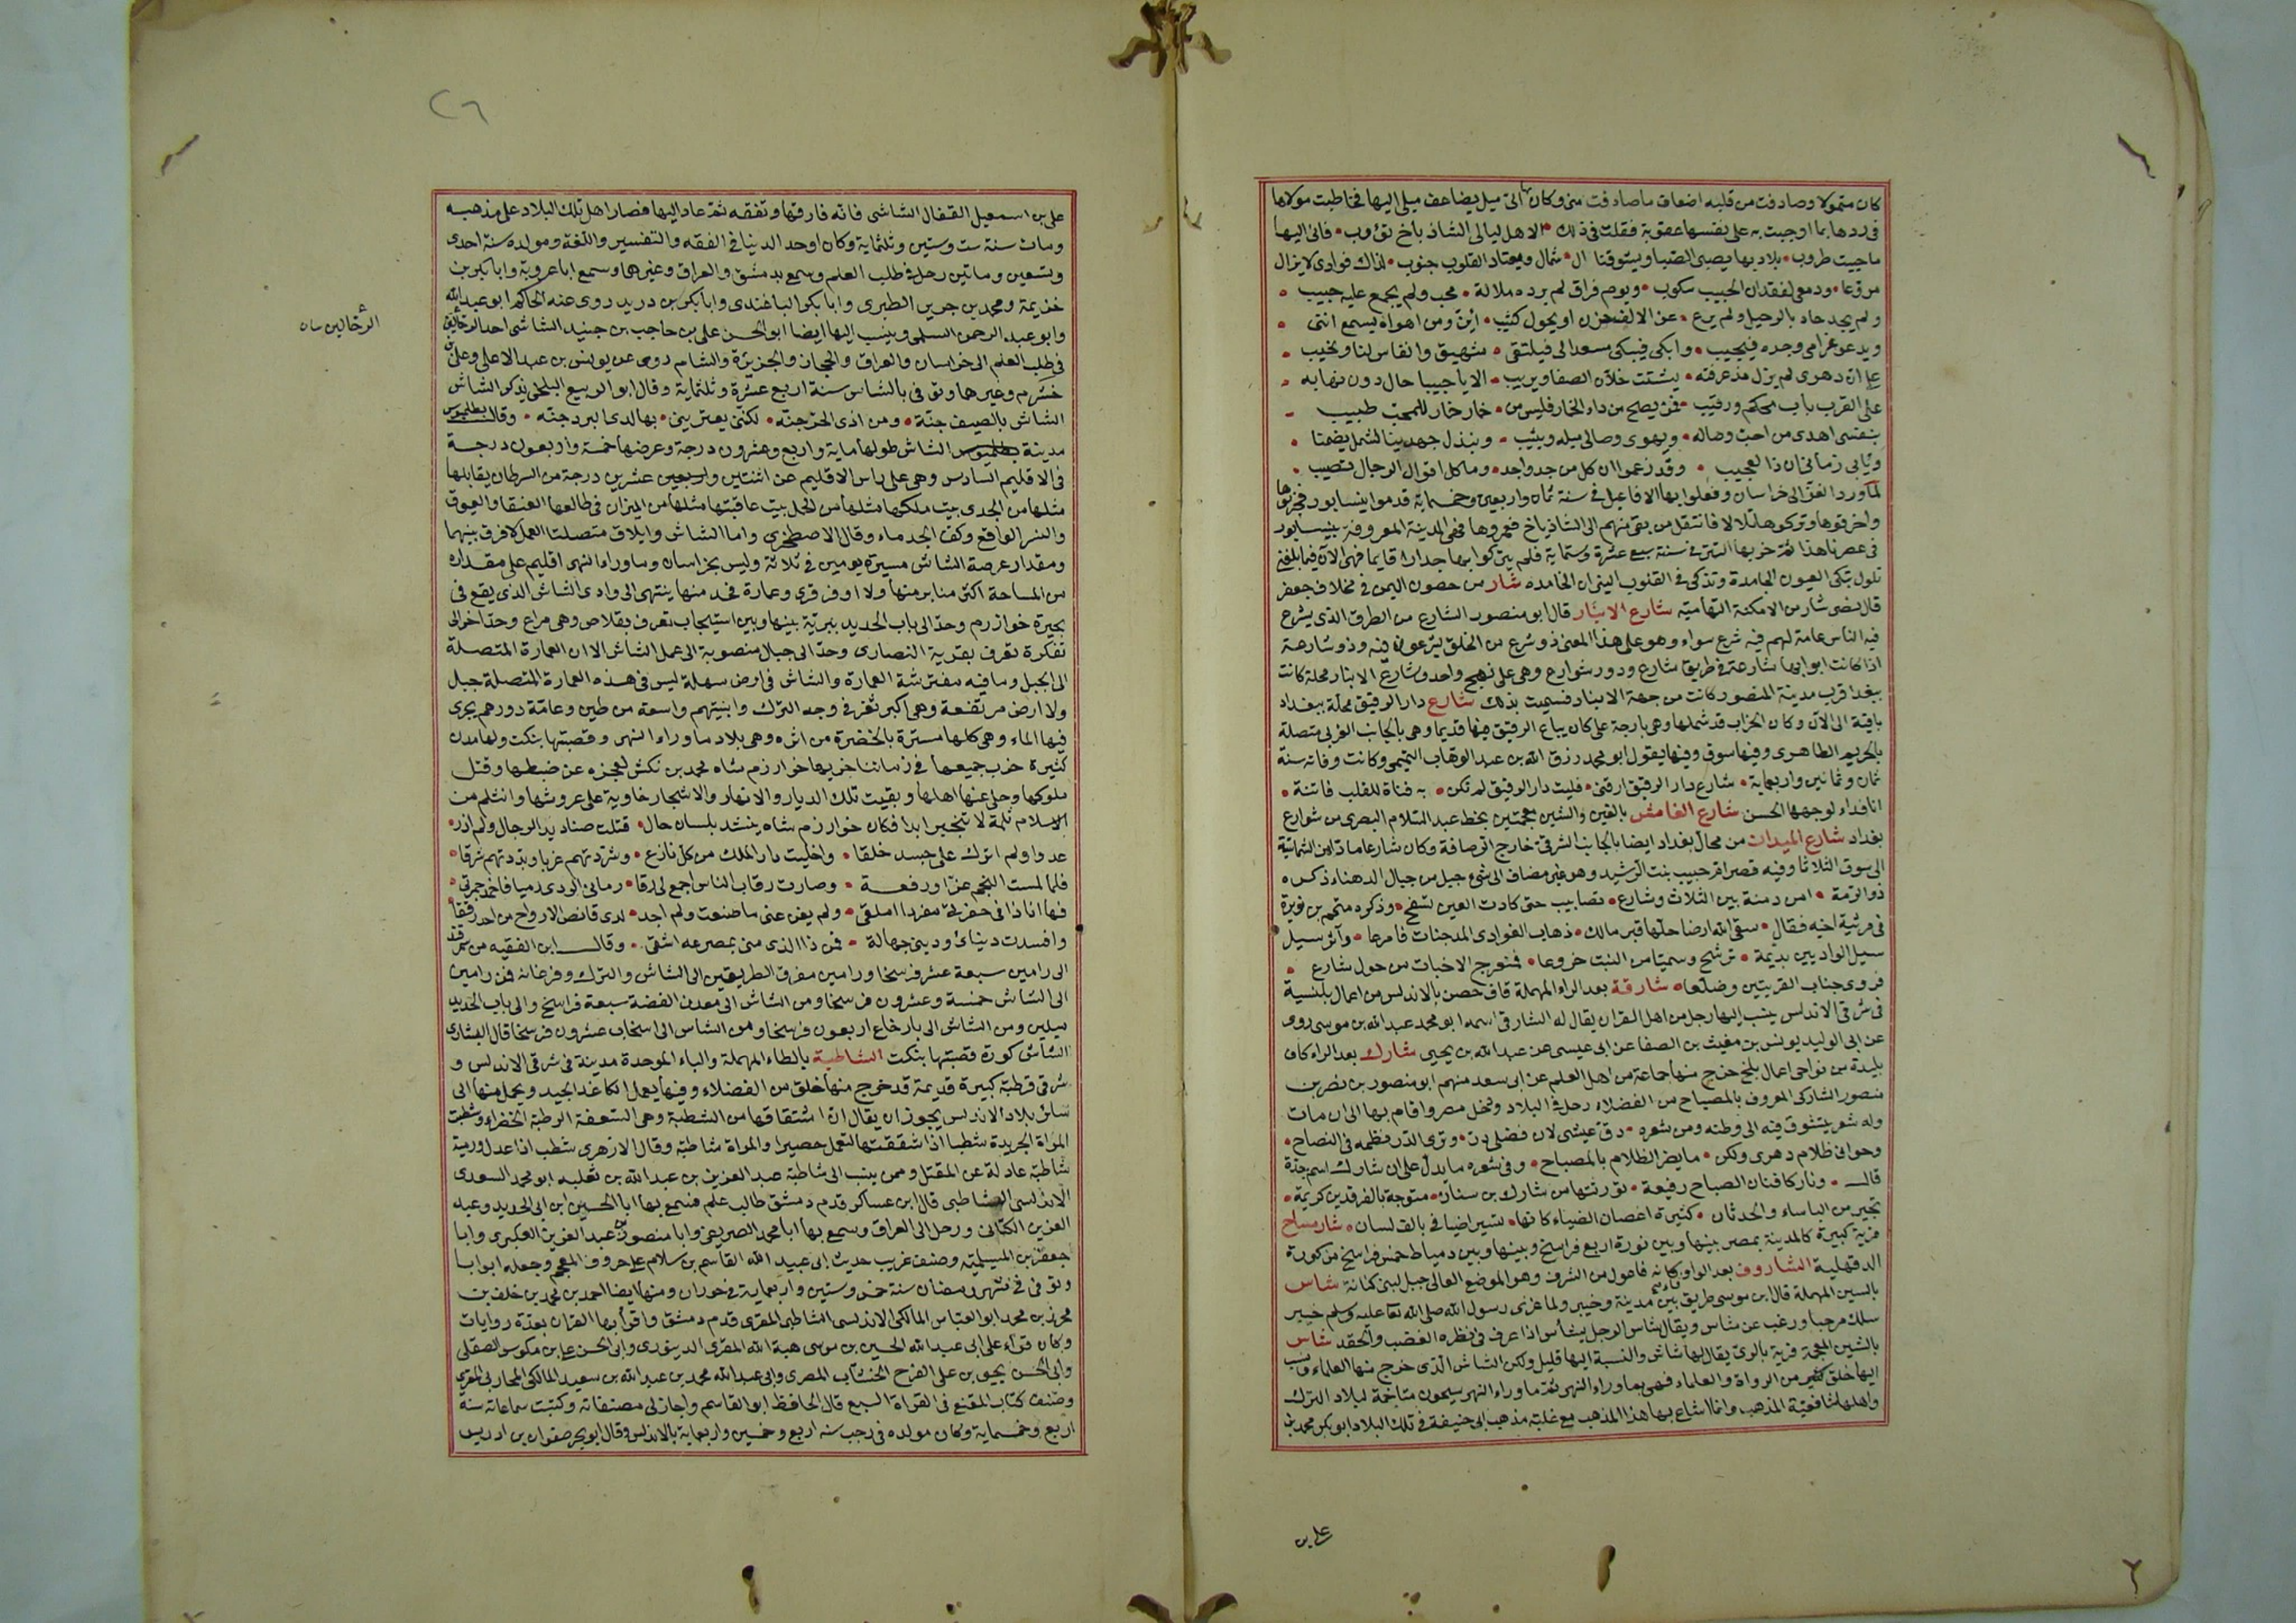 كان متمولا وصادفت من قلبه اضعاف ما صادفت منى وكان لها الىّ ميل يضاعف ميلى اليها فخاطبت مولاها
فى ردها بما اوجبت به على نفسها عقوبة فقلت فى ذلك الا هل ليالى الشاذياخ تؤوب • فانى اليها
ما حييت طروب • بلاد بها يصبى الصبا ويشوقنا ال • شمال ويقتاد القلوب جنوب • لذاك فوادى لا يزال
مروّعا • ودمعى لفقدان الحبيب سكوب • ويوم فراق لم يرده ملالة • محب ولم يجمع عليه حبيب •
ولم يحد حاد بالرحيل ولم يرع • عن الالف حزن او يحول كثيب • أئن ومن اهواه يسمع انتى •
ويدعو غرامى وجده فيجيب • وابكى فيبكى مسعدا لى فيلتقى • شهيق وانفاس لنا ونحيب •
على ان دهرى لم يزل مذ عرفته • يشتت خلان الصفا ويريب • الا يا حبيبا حال دون بهائه •
على القرب باب محكم ورقيب • فمن يصح من داء الخمار فليس من • خمار خمار للمحب طبيب •
بنفسى افدى من احب وصاله • ويهوى وصالى ميله ويثيب • ونبذل جهدينا لشمل يضمنا •
ويأبى زمانى ان ذا لعجيب • وقد زعموا ان كل من جد واجد • وما كل اقوال الرجال تصيب •
لما ورد الغز الى خراسان وفعلوا بها الافاعيل فى سنة ثمان واربعين وخمسماية قدموا نيسابور فخربوها
واحرقوها وتركوها تلالا فانتقل من بقى منهم الى الشاذياخ فعمروها فهى المدينة المعروفة بنيسابور
فى عصرنا هذا ثمّ خربها التتر فى سنة سبع عشرة وستماية فلم يتركوا بها جدارا قايما فهى الآن فيما بلغنى
تلول تبكى العيون الجامدة وتذكى فى القلوب النيران الخامدة شار من حصون اليمن فى مخلاف جعفر
قال نصر شار من الامكنة التهامية شارع الانبار قال ابو منصور الشارع من الطرق الذى يشرع
فيه الناس عامة لهم فيه شرع سواء وهو على هذا المعنى ذو شرع من الخلق يشرعون فيه وذو شارعة
اذا كانت ابوابها شارعة فى طريق شارع ودور شوارع وهى على نهج واحد وشارع الانبار محلة كانت
ببغداد قرب مدينة المنصور كانت من جهة الانبار فسميت بذلك شارع دار الرقيق محلة ببغداد
باقية الى الآن وكان الخراب قد شملها وهى بارجة على كان يباع الرقيق فيها قديما وهى بالجانب الغربى متصلة
بالحريم الطاهرى وفيها سوق وفيها يقول ابو محمد رزق الله بن عبد الوهاب التميمى وكانت وفاته سنة
ثمان وثمانين واربعماية • شارع دار الرقيق ارقنى • فليت دار الرقيق لم تكن • به فتاة للقلب فاتنة •
انا فداء لوجهها الحسن شارع الغامش بالغين والشين معجمتين بخط عبد السلام البصرى من شوارع
بغداد شارع الميدان من محال بغداد ايضا بالجانب الشرقى خارج الرصافة وكان شارعا مادا من الشماسية
الى سوق الثلاثا وفيه قصر ام حبيب بنت الرشيد وهو غير مضاف الى شئ جبل من جبال الدهناء ذكره
ذو الرمة • امن دمنة بين القلات وشارع • تصابيت حتى كادت العين تسفح • وذكره متمم بن نويرة
فى مرثية اخيه فقال • سقى الله ارضا حلها قبر مالك • ذهاب الغوادى المدجنات فامرعا • وآثر سيل
سيل الواديين بديمة • ترشح وسميا من النبت خروعا • فمنعرج الاجناب من حول شارع •
فروى جناب القريتين فضلفعا شارقة بعد الراء المهملة قاف حصن بالاندلس من اعمال بلنسية
فى شرقى الاندلس ينسب اليها رجل من اهل القران يقال له الشارقى اسمه ابو محمد عبد الله بن موسى روى
عن ابى الوليد يونس بن مغيث بن الصفا عن ابى عيسى عن عبد الله بن يحيى شارك بعد الراء كاف
بليدة من نواحى اعمال بلخ خرج منها جماعة من اهل العلم عن ابى سعد منهم ابو منصور بن نصر بن
منصور الشاركى المعروف بالمصباح من الفضلاء رحل فى البلاد ودخل مصر واقام بها الى ان مات
وله شعر يتشوق فيه الى وطنه ومن شعره • دق عيشى لان فضلى دق • وترى الدر نظمه فى النصاح •
وحوانى ظلام دهرى ولكن • ما يضر الظلام بالمصباح • وفى شعره ما يدل على ان شارك اسم جدة
قال • ونار كافنان الصباح رفيعة • تورثتها من شارك بن سنان • متوجة بالفرقدين كريمة •
تجير من الباساء والحدثان • كثيرة اغصان الضياء كانها • تبشر اضيافى بالف لسان • شارمساح
قرية كبيرة كالمدينة بمصر بينها وبين بورة اربع فراسخ وبينها وبين دمياط خمس فراسخ من كورة
الدقهلية الشاروف بعد الواو كانه فاعول من الشرف وهو الموضع العالى جبل لبنى كنانة شاس
بالسين المهملة قال ابن موسى طريق بين مدينة وخيبر ولما غزى رسول الله صلى الله تعا عليه وسلم خيبر
سلك مرحبا ورغب عن شاس ويقال شاس الرجل يشأس اذا عرف فى نظره الغضب والحقد شاس
بالشين المعجمة قرية بالرى يقال لها شاش والنسبة اليها قليل ولكن الشاش الذى خرج منها العلماء ونسب
اليها خلق كثير من الرواة والعلماء فهى بما وراء النهر ثم ما وراء النهر سيحون متاخمة لبلاد الترك
واهلها شافعية المذهب وانما اشاع بها هذا المذهب مع غلبة مذهب ابى حنيفة فى تلك البلاد ابو بكر محمد بن
على بن
٢٦
على بن اسمعيل القفال الشاشى فانه فارقها وتفقه ثمّ عاد اليها فصار اهل تلك البلاد على مذهبه
ومات سنة ست وستين وثلثماية وكان اوحد الدنيا فى الفقه والتفسير واللغة ومولده سنة احدى
وتسعين وماتين رحل فى طلب العلم وسمع بدمشق والعراق وغيرها وسمع ابا عروبة وابا بكر بن
خزيمة ومحمد بن جرير الطبرى وابا بكر الباغندى وابا بكر بن دريد روى عنه الحاكم ابو عبد الله
وابو عبد الرحمن السلمى وينسب اليها ايضا ابو الحسن على بن حاجب بن جنيد الشاشى احد الرحّالين
فى طلب العلم الى خراسان والعراق والحجاز والجزيرة والشام روى عن يونس بن عبد الاعلى وعلى بن
خشرم وغيرها وتوفى بالشاش سنة اربع عشرة وثلثماية وقال ابو الربيع البلخى يذكر الشاش
الشاش بالصيف جنّة • ومن اذى الحرّ جنّه • لكنّى يعترينى • بها لدى البرد جنّه • وقال بطلميوس
مدينة الشاش طولها ماية واربع وعشرون درجة وعرضها خمسة واربعون درجة
فى الاقليم السادس وهى على راس الاقليم عن اثنتين وعشرين درجة من السرطان يقابلها
مثلها من الجدى بيت ملكها مثلها من الحمل بيت عاقبتها مثلها من الميزان فى طالعها العنقا والعيوق
والنسر الواقع وكف الجدماء وقال الاصطخرى واما الشاش وايلاق متصلتا العمل لا فرق بينهما
ومقدار عرصة الشاش مسيرة يومين فى ثلاثة وليس بخراسان وما وراء النهر اقليم على مقداره
من المساحة اكثر منابر منها ولا اوفر قرى وعمارة فحد منها ينتهى الى وادى الشاش الذى يقع فى
بحيرة خوارزم وحدّ الى باب الحديد ببريّة بينها وبين اسبيجاب تعرف بقلاص وهى مراع وحدّ اخر الى
تنكرة تعرف بقرية النصارى وحدّ الى جبال منصوبة الى عمل الشاش الا ان العمارة المتصلة
الى الجبل وما فيه مفترشة العمارة والشاش فى ارض سهلة ليس فى هذه العمارة المتصلة جبل
ولا ارض مرتفعة وهى اكبر ثغر فى وجه الترك وابنيتهم واسعة من طين وعامّة دورهم يجرى
فيها الماء وهى كلها مسترة بالخضرة من انزه وهى بلاد ما وراء النهر وقصبتها بنكت ولها مدن
كثيرة خرب جميعها فى زماننا خربها خوارزم شاه محمد بن تكش لعجزه عن ضبطها وقتل
ملوكها وجلى عنها اهلها وبقيت تلك الديار والانهار والاشجار خاوية على عروشها وانثلم من
الاسلام ثلمة لا تنجبر ابدا فكان خوارزم شاه ينشد بلسان حال • قتلت صناديد الرجال ولم اذر •
عدوا ولم اترك على جسد خلقا • واخليت دار الملك من كل نازع • وشردتهم غربا وبددتهم شرقا •
فلما لمست النجم عزّا ورفعة • وصارت رقاب الناس اجمع لى رقا • رمانى الردى رميا فاخمد جمرتى •
فها انا ذا فى حفرتى مفردا املقى • ولم يغن عنى ما صنعت ولم اجد • لدى قابض الارواح من احد رفقا •
وافسدت دنياى ودينى جهالة • فمن ذا الذى منى بمصرعه اشقى • وقال ابن الفقيه من سمرقند
الى زامين سبعة عشر فرسخا وزامين مفرق الطريقين الى الشاش والترك وفرغانه فمن زامين
الى الشاش خمسة وعشرون فرسخا ومن الشاش الى معدن الفضة سبعة فراسخ والى باب الحديد
ميلين ومن الشاش الى بارخاع اربعون فرسخا ومن الشاش الى اسبخاب عشرون فرسخا قال البشارى
الشاش كورة قصبتها بنكت الشاطبة بالطاء المهملة والباء الموحدة مدينة فى شرقى الاندلس و
شرقى قرطبة كبيرة قديمة قد خرج منها خلق من الفضلاء وفيها يعمل الكاغد الجيد ويحمل منها الى
سائر بلاد الاندلس يجوز ان يقال ان اشتقاقها من الشطبة وهى السعفة الرطبة الخضراء وشطبت
المراة الجريدة شطبا اذا شققتها لتعمل حصيرا والمراة شاطبة وقال الازهرى شطب اذا عدل ورمية
شاطبة عادلة عن المقتل وممن ينسب الى شاطبة عبد العزيز بن عبد الله بن ثعلبه ابو محمد السعدى
الاندلسى الشاطبى قال ابن عساكر قدم دمشق طالب علم فسمع بها ابا الحسين ابن ابى الحديد وعبد
العزيز الكتانى ورحل الى العراق وسمع بها ابا محمد الصريفينى وابا منصور بن عبد العزيز العكبرى وابا
جعفر بن المسلمة وصنف غريب حديث ابى عبيد الله القاسم بن سلام على حروف المعجم وجعله ابوابا
وتوفى فى شهر رمضان سنة خمس وستين واربعماية فى حوران ومنها ايضا احمد بن محمد بن خلف بن
محرز بن محمد ابو العباس المالكى الاندلسى الشاطبى المقرى قدم دمشق واقرأ بها القران بعدّة روايات
وكان قرأ على ابى عبد الله الحسين بن موسى هبة الله المقرى الدينورى وابى الحسن على بن مكوس الصقلى
وابى الحسن يحيى بن على الفرح الخشاب المصرى وابى عبد الله محمد بن عبد الله بن سعيد المالكى المحاربى المقرى
وصنف كتاب المقنع فى القراة السبع قال الحافظ ابو القاسم واجاز لى مصنفاته وكتبت سماعاته سنة
اربع وخمسماية وكان مولده فى رجب سنه اربع وخمسين واربعماية بالاندلس وقال ابو بحر صفوان بن ادريس
الرحّالين